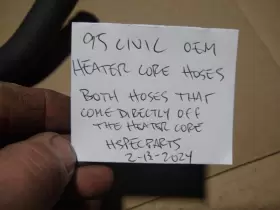 95 CIVIC OEM
HEATER CORE HOSES
BOTH HOSES THAT
COME DIRECTLY OFF
THE HEATER CORE
HSPECPARTS
2-13-2024